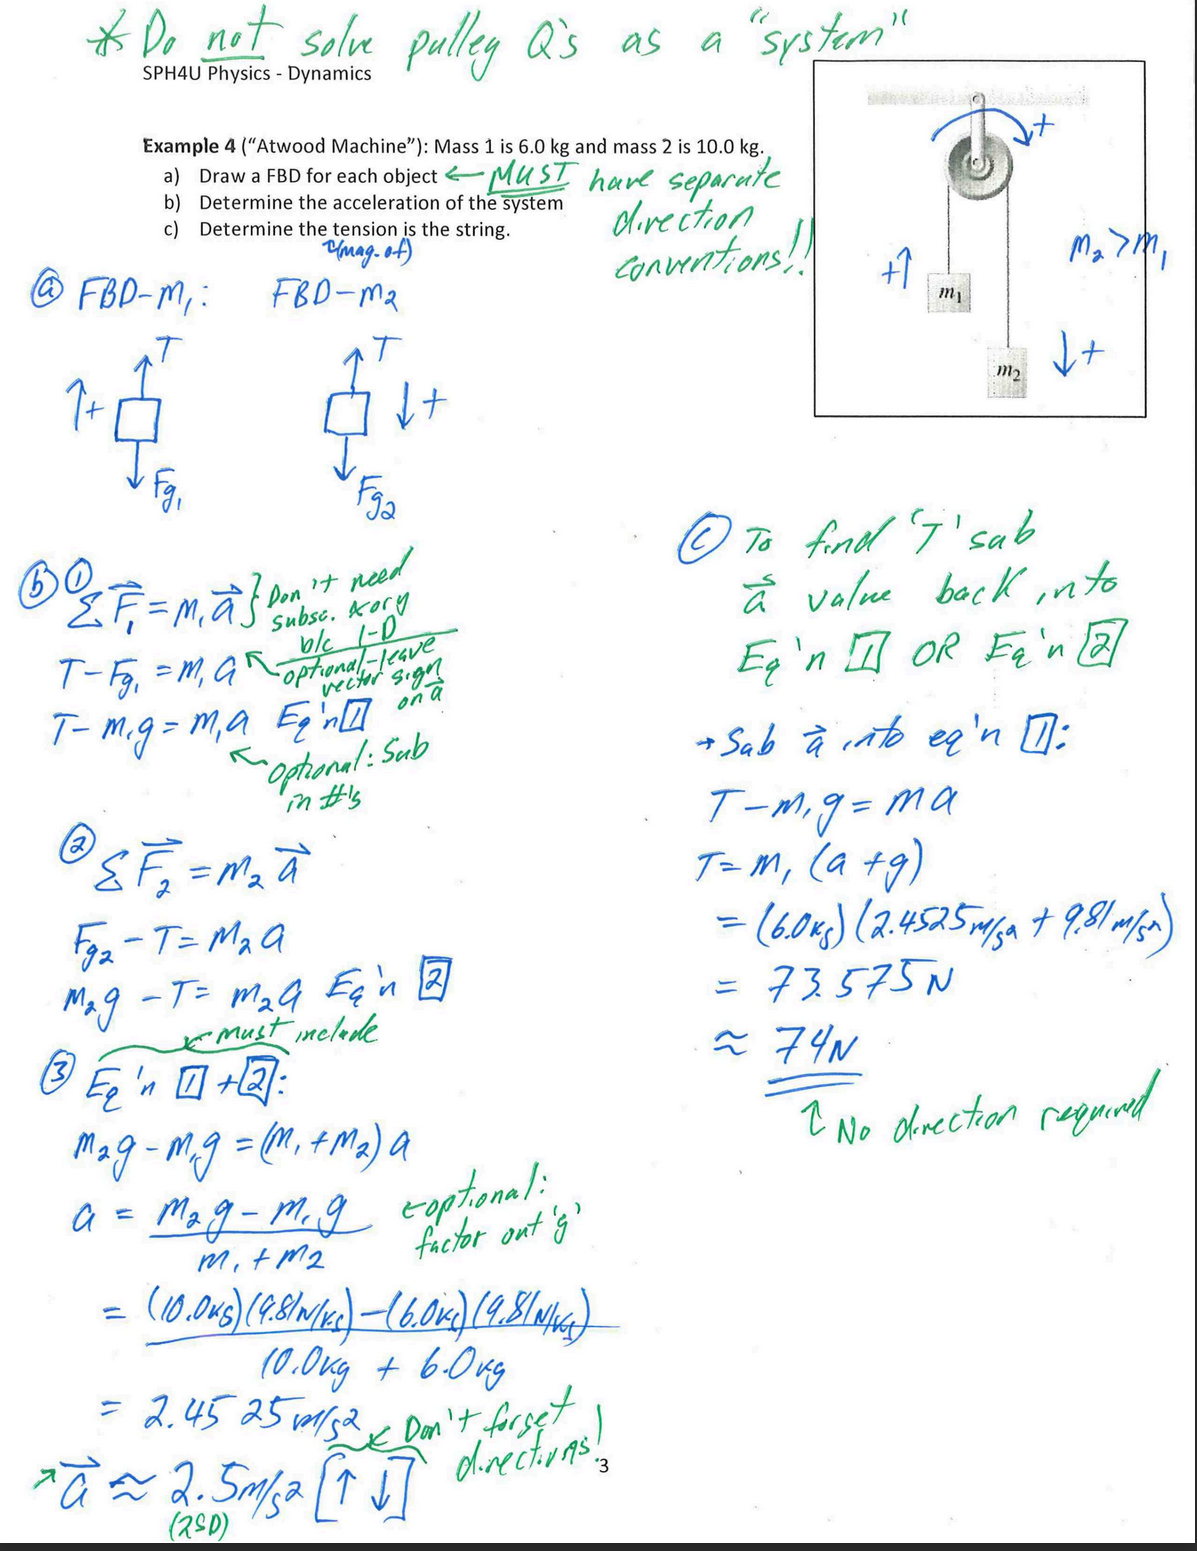 * Do not solve pulley Q's as a "system"
SPH4U Physics - Dynamics
Example 4 ("Atwood Machine"): Mass 1 is 6.0 kg and mass 2 is 10.0 kg.
a) Draw a FBD for each object ← MUST have separate
direction
conventions!!
b) Determine the acceleration of the system
c) Determine the tension is the string.
↑(mag. of)
+
+↑
m₁
m₂
↓+
m₂ > m₁
ⓐ FBD-m₁: FBD-m₂
T T
↑+ ↓+
Fg₁ Fg₂
ⓑ ① ΣF⃗₁ = m₁a⃗ } Don't need
subsc. x or y
b/c 1-D
T - Fg₁ = m₁a ← optional - leave
vector sign
on a⃗
T - m₁g = m₁a Eq'n [1]
↖ optional: Sub
in #'s
② ΣF⃗₂ = m₂a⃗
Fg₂ - T = m₂a
m₂g - T = m₂a Eq'n [2]
↙ must include
③ Eq'n [1] + [2]:
m₂g - m₁g = (m₁ + m₂) a
a = m₂g - m₁g ← optional:
factor out 'g'
m₁ + m₂
= (10.0kg)(9.81N/kg) - (6.0kg)(9.81N/kg)
10.0kg + 6.0kg
= 2.4525 m/s²
↙ Don't forget
directions!
↗ a⃗ ≈ 2.5m/s² [↑ ↓]
(2SD)
ⓒ To find 'T' sub
a⃗'s value back into
Eq'n [1] OR Eq'n [2]
→ Sub a⃗ into eq'n [1]:
T - m₁g = ma
T = m₁ (a + g)
= (6.0kg)(2.4525m/s² + 9.81m/s²)
= 73.575N
≈ 74N
↑ No direction required
3